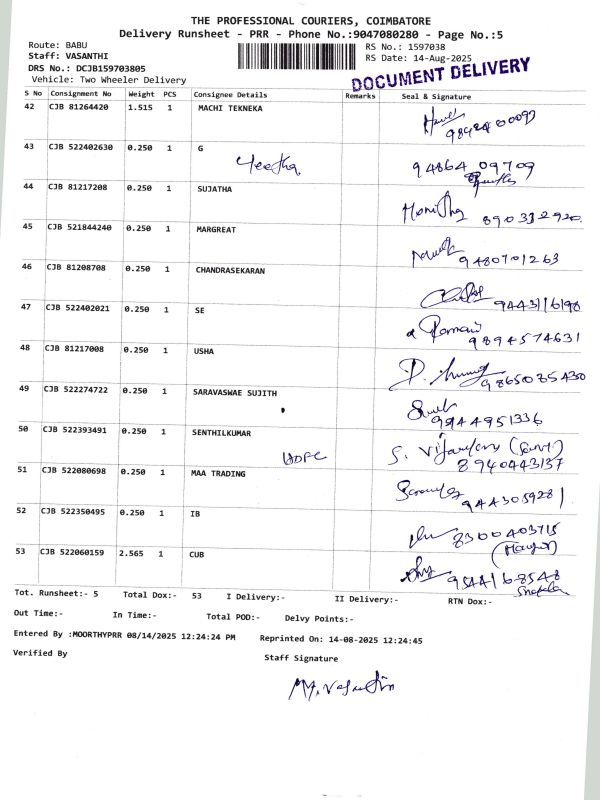 THE PROFESSIONAL COURIERS, COIMBATORE
Delivery Runsheet - PRR - Phone No.:9047080280 - Page No.:5
Route: BABU
Staff: VASANTHI
DRS No.: DCJB159703805
Vehicle: Two Wheeler Delivery
RS No.: 1597038
RS Date: 14-Aug-2025
DOCUMENT DELIVERY
S No Consignment No Weight PCS Consignee Details Remarks Seal & Signature
42 CJB 81264420 1.515 1 MACHI TEKNEKA
43 CJB 522402630 0.250 1 G 94864 09709
Geetha
44 CJB 81217208 0.250 1 SUJATHA
8903312920
45 CJB 521844240 0.250 1 MARGREAT
9480701263
46 CJB 81208708 0.250 1 CHANDRASEKARAN
9443116198
47 CJB 522402021 0.250 1 SE
9894574631
48 CJB 81217008 0.250 1 USHA
9865035430
49 CJB 522274722 0.250 1 SARAVASWAE SUJITH
9944951336
50 CJB 522393491 0.250 1 SENTHILKUMAR
HDFC
8940443137
51 CJB 522080698 0.250 1 MAA TRADING
9443059281
52 CJB 522350495 0.250 1 IB 8300403715
53 CJB 522060159 2.565 1 CUB
9544168548
Tot. Runsheet:- 5 Total Dox:- 53 I Delivery:- II Delivery:- RTN Dox:-
Out Time:- In Time:- Total POD:- Delvy Points:-
Entered By :MOORTHYPRR 08/14/2025 12:24:24 PM Reprinted On: 14-08-2025 12:24:45
Verified By Staff Signature
M. Vasanthi